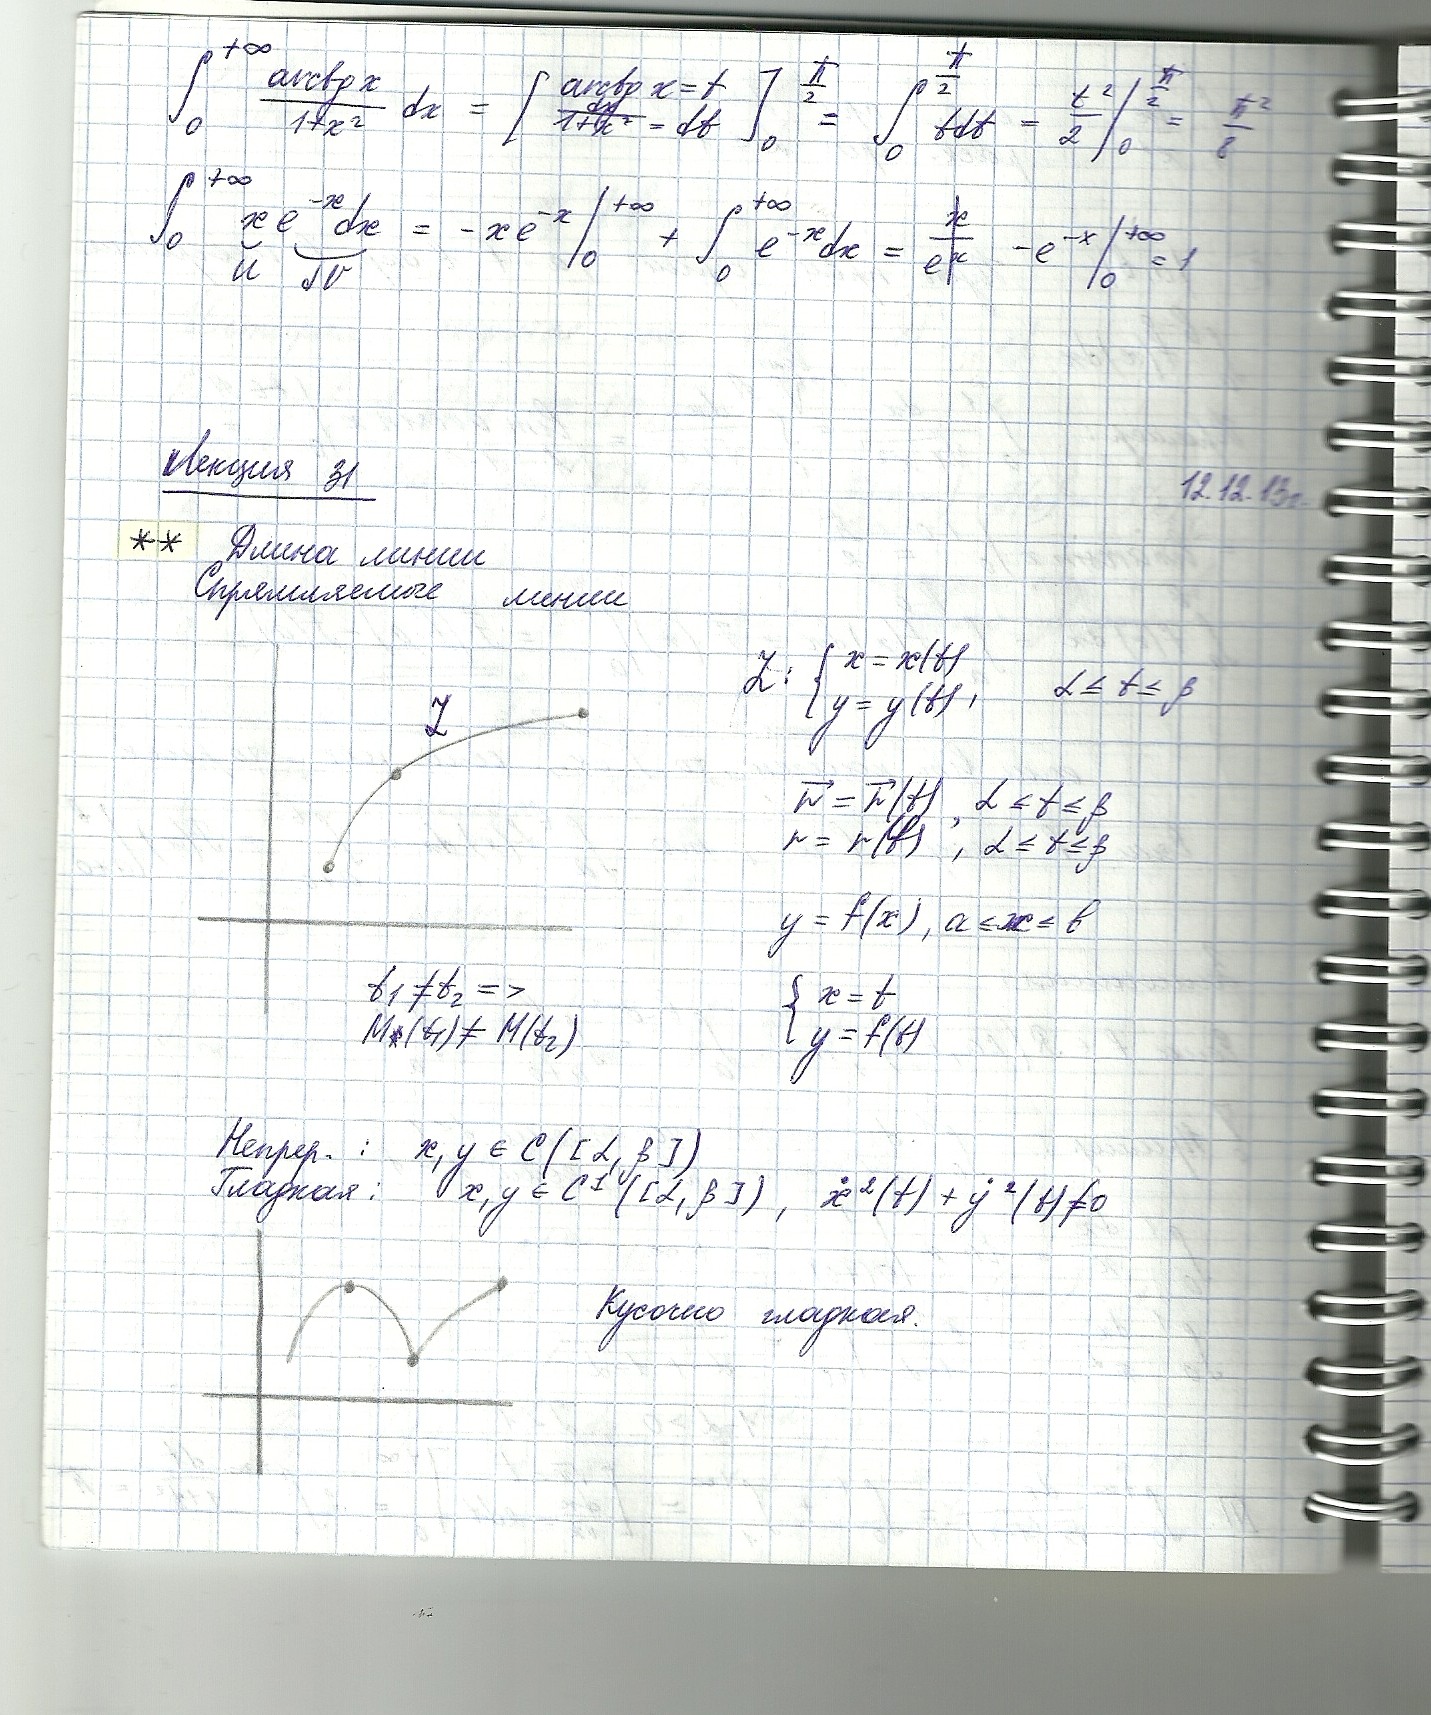 ∫₀^{+∞} arctg x / (1+x²) dx = [ arctg x = t, dx/(1+x²) = dt ]₀^{π/2} = ∫₀^{π/2} t dt = t²/2 |₀^{π/2} = π²/8
∫₀^{+∞} x e^{-x} dx = -x e^{-x} |₀^{+∞} + ∫₀^{+∞} e^{-x} dx = x/e^x - e^{-x} |₀^{+∞} = 1
u dV
Лекция 31
12.12.13г.
** Длина линии
Спрямляемые линии
L
L: { x = x(t)
y = y(t), α ≤ t ≤ β
r⃗ = r⃗(t), α ≤ t ≤ β
r = r(t), α ≤ t ≤ β
y = f(x), a ≤ x ≤ b
t₁ ≠ t₂ =>
M(t₁) ≠ M(t₂)
{ x = t
y = f(t)
Непрер. : x, y ∈ C([α, β])
Гладкая: x, y ∈ C¹([α, β]), ẋ²(t) + ẏ²(t) ≠ 0
Кусочно гладкая.